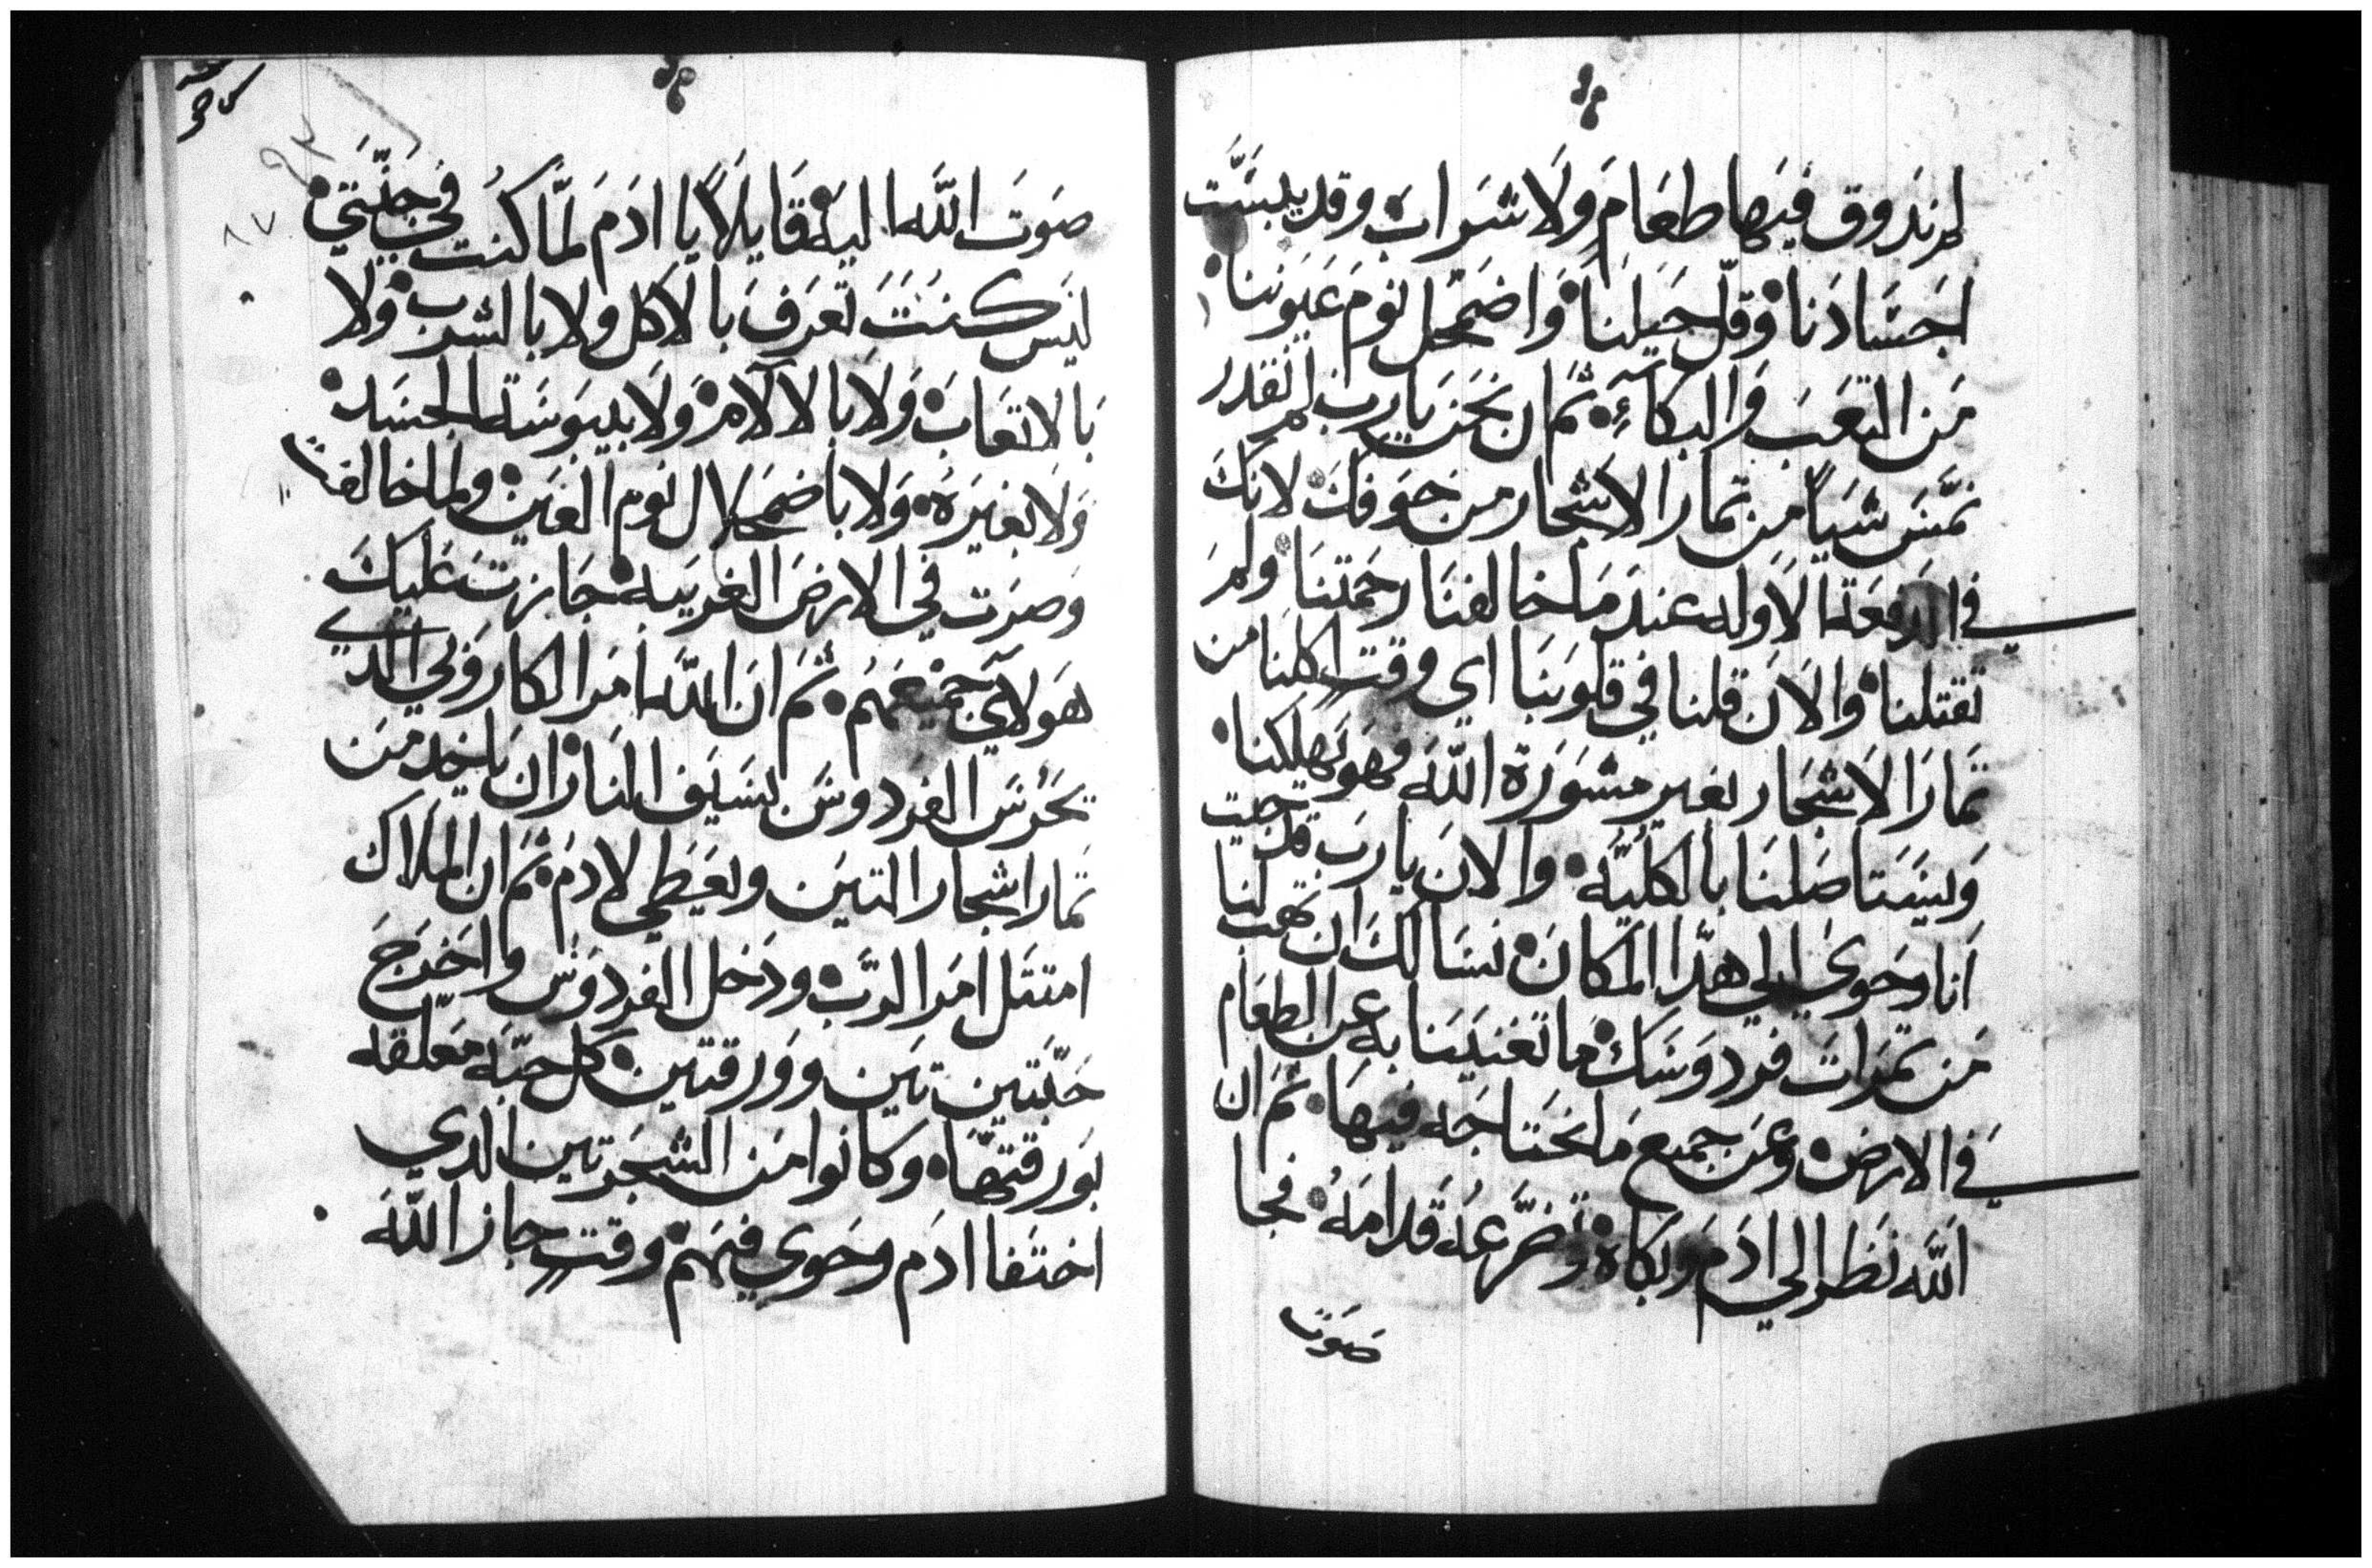 لم ندوق فيها طعام ولا شراب وقد يبست
اجسادنا وقل حيلنا واضمحل نوم عيوننا
من التعب والبكاء ثم ان نحن يارب لم نقدر
نمس شيا من تمار الاشجار من خوفك لانك
في الدفعه الاوله عند ما خالفنا رحمتنا ولم
تقتلنا والان قلنا في قلوبنا اي وقت اكلنا من
تمار الاشجار بغير مشورة الله فهو يهلكنا
ويستاصلنا بالكليه والان يارب قد جيت
انا وحوي الي هدا المكان نسالك ان تهب لنا
من تمرات فردوسك ما تغنينا به عن الطعام
في الارض وعن جميع ما نحتاجه فيها ثم ان
الله نظر الي ادم وبكاه وتضرعه قدامه فجا
صوت
صوت الله اليه قايلا يا ادم لما كنت في جنتي
ليس كنت تعرف بالاكل ولا بالشرب ولا
بالاتعاب ولا بالالام ولا بيبوسة الجسد
ولا بغيره ولا باضمحلال نوم العين ولما خالفت
وصرت في الارض الغريبه جازت عليك
هولاي جميعهم ثم ان الله امر الكاروبي الدي
يحرس الفردوس بسيف النار ان ياخد من
تمار اشجار التين ويعطي لادم ثم ان الملاك
امتتل امر الرب ودخل الفردوس واخرج
حبتين تين وورقتين كل حبه معلقه
بورقتها وكانوا من الشجرتين الدي
اختفا ادم وحوي فيهم وقت جاز الله